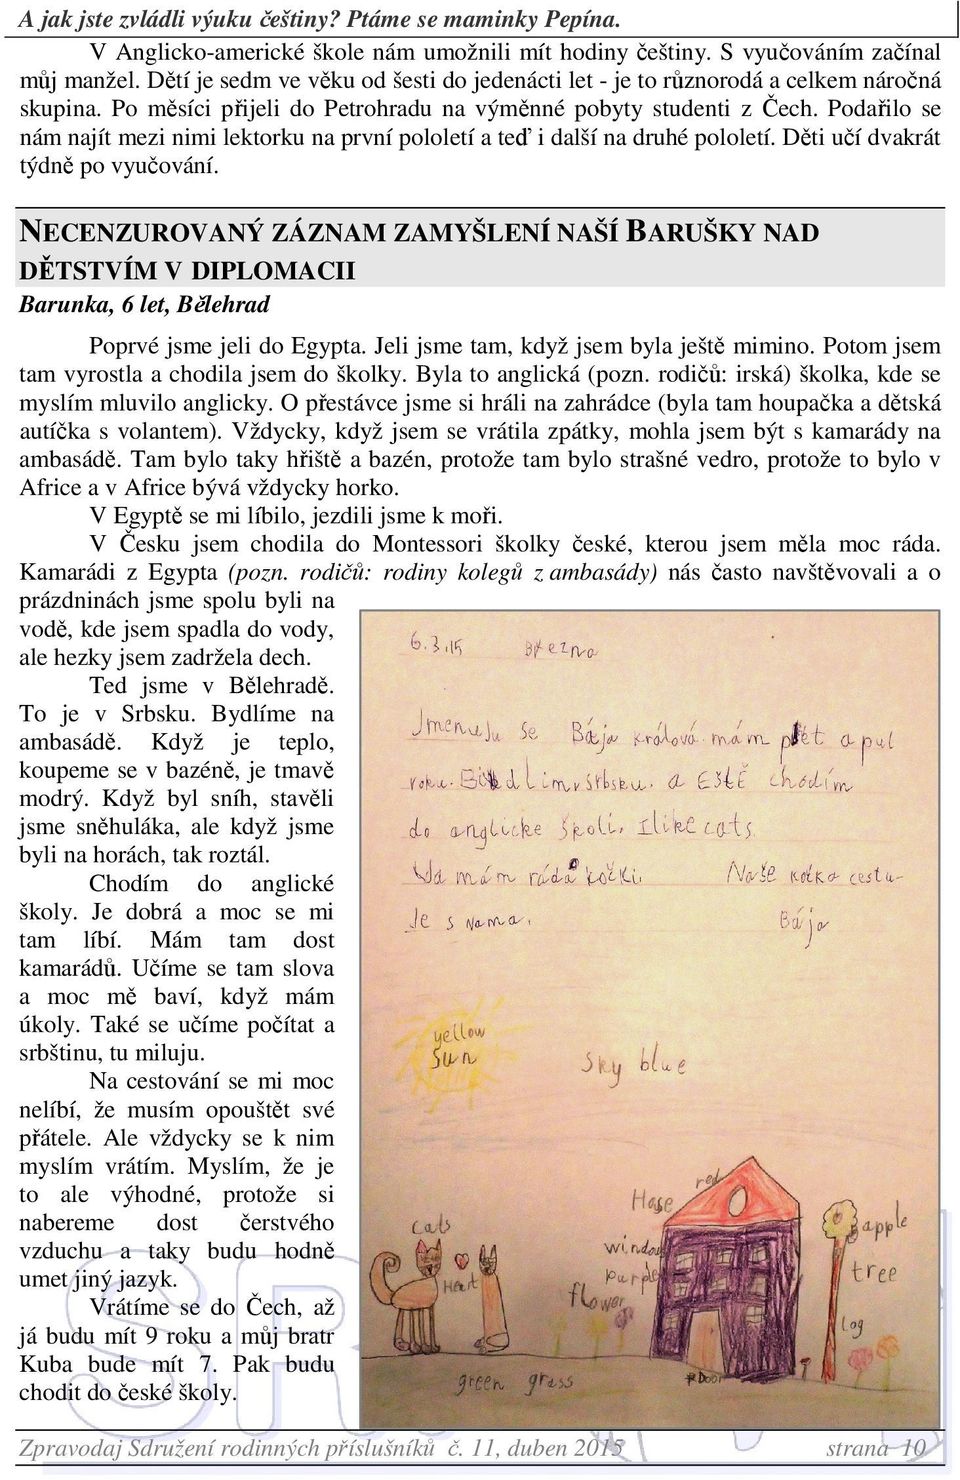 A jak jste zvládli výuku češtiny? Ptáme se maminky Pepína.
V Anglicko-americké škole nám umožnili mít hodiny češtiny. S vyučováním začínal
můj manžel. Dětí je sedm ve věku od šesti do jedenácti let - je to různorodá a celkem náročná
skupina. Po měsíci přijeli do Petrohradu na výměnné pobyty studenti z Čech. Podařilo se
nám najít mezi nimi lektorku na první pololetí a teď i další na druhé pololetí. Děti učí dvakrát
týdně po vyučování.
NECENZUROVANÝ ZÁZNAM ZAMYŠLENÍ NAŠÍ BARUŠKY NAD
DĚTSTVÍM V DIPLOMACII
Barunka, 6 let, Bělehrad
Poprvé jsme jeli do Egypta. Jeli jsme tam, když jsem byla ještě mimino. Potom jsem
tam vyrostla a chodila jsem do školky. Byla to anglická (pozn. rodičů: irská) školka, kde se
myslím mluvilo anglicky. O přestávce jsme si hráli na zahrádce (byla tam houpačka a dětská
autíčka s volantem). Vždycky, když jsem se vrátila zpátky, mohla jsem být s kamarády na
ambasádě. Tam bylo taky hřiště a bazén, protože tam bylo strašné vedro, protože to bylo v
Africe a v Africe bývá vždycky horko.
V Egyptě se mi líbilo, jezdili jsme k moři.
V Česku jsem chodila do Montessori školky české, kterou jsem měla moc ráda.
Kamarádi z Egypta (pozn. rodičů: rodiny kolegů z ambasády) nás často navštěvovali a o
prázdninách jsme spolu byli na
vodě, kde jsem spadla do vody,
ale hezky jsem zadržela dech.
Ted jsme v Bělehradě.
To je v Srbsku. Bydlíme na
ambasádě. Když je teplo,
koupeme se v bazéně, je tmavě
modrý. Když byl sníh, stavěli
jsme sněhuláka, ale když jsme
byli na horách, tak roztál.
Chodím do anglické
školy. Je dobrá a moc se mi
tam líbí. Mám tam dost
kamarádů. Učíme se tam slova
a moc mě baví, když mám
úkoly. Také se učíme počítat a
srbštinu, tu miluju.
Na cestování se mi moc
nelíbí, že musím opouštět své
přátele. Ale vždycky se k nim
myslím vrátím. Myslím, že je
to ale výhodné, protože si
nabereme dost čerstvého
vzduchu a taky budu hodně
umet jiný jazyk.
Vrátíme se do Čech, až
já budu mít 9 roku a můj bratr
Kuba bude mít 7. Pak budu
chodit do české školy.
6.3.15 Března
Jmenuju se Bája králová mám pět a pul
roku. Bidlim v srbsku. a EŠTĚ chódím
do anglicke školi. I like cats.
Ja mám ráda kočki. Naše kočka cestu-
Je s nama. Bája
yellow
sun
sky blue
red
Hose
cats
window
apple
purple
Heart
tree
flower
log
Door
green grass
Zpravodaj Sdružení rodinných příslušníků č. 11, duben 2015 strana 10